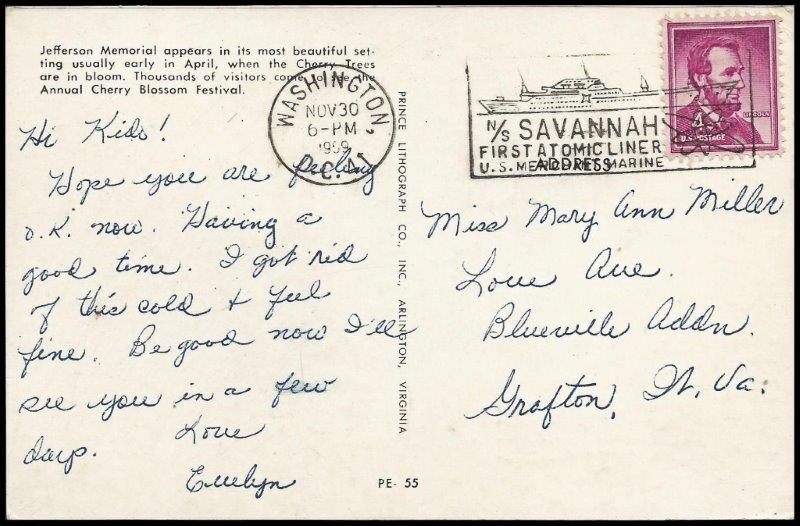 Jefferson Memorial appears in its most beautiful set-
ting usually early in April, when the Cherry Trees
are in bloom. Thousands of visitors come to see the
Annual Cherry Blossom Festival.
Hi Kids!
Hope you are feeling
O.K. now. Having a
good time. I got rid
of this cold & feel
fine. Be good now I'll
see you in a few
days.
Love
Evelyn
PRINCE LITHOGRAPH CO., INC., ARLINGTON, VIRGINIA
PE- 55
WASHINGTON,
NOV 30
6-PM
1959
D.C. 41
N/S SAVANNAH
FIRST ATOMIC LINER
U.S. MERCHANT MARINE
ADDRESS
4¢
LINCOLN
U.S. POSTAGE
Miss Mary Ann Miller
Love Ave.
Blueville Addn.
Grafton, W. Va.